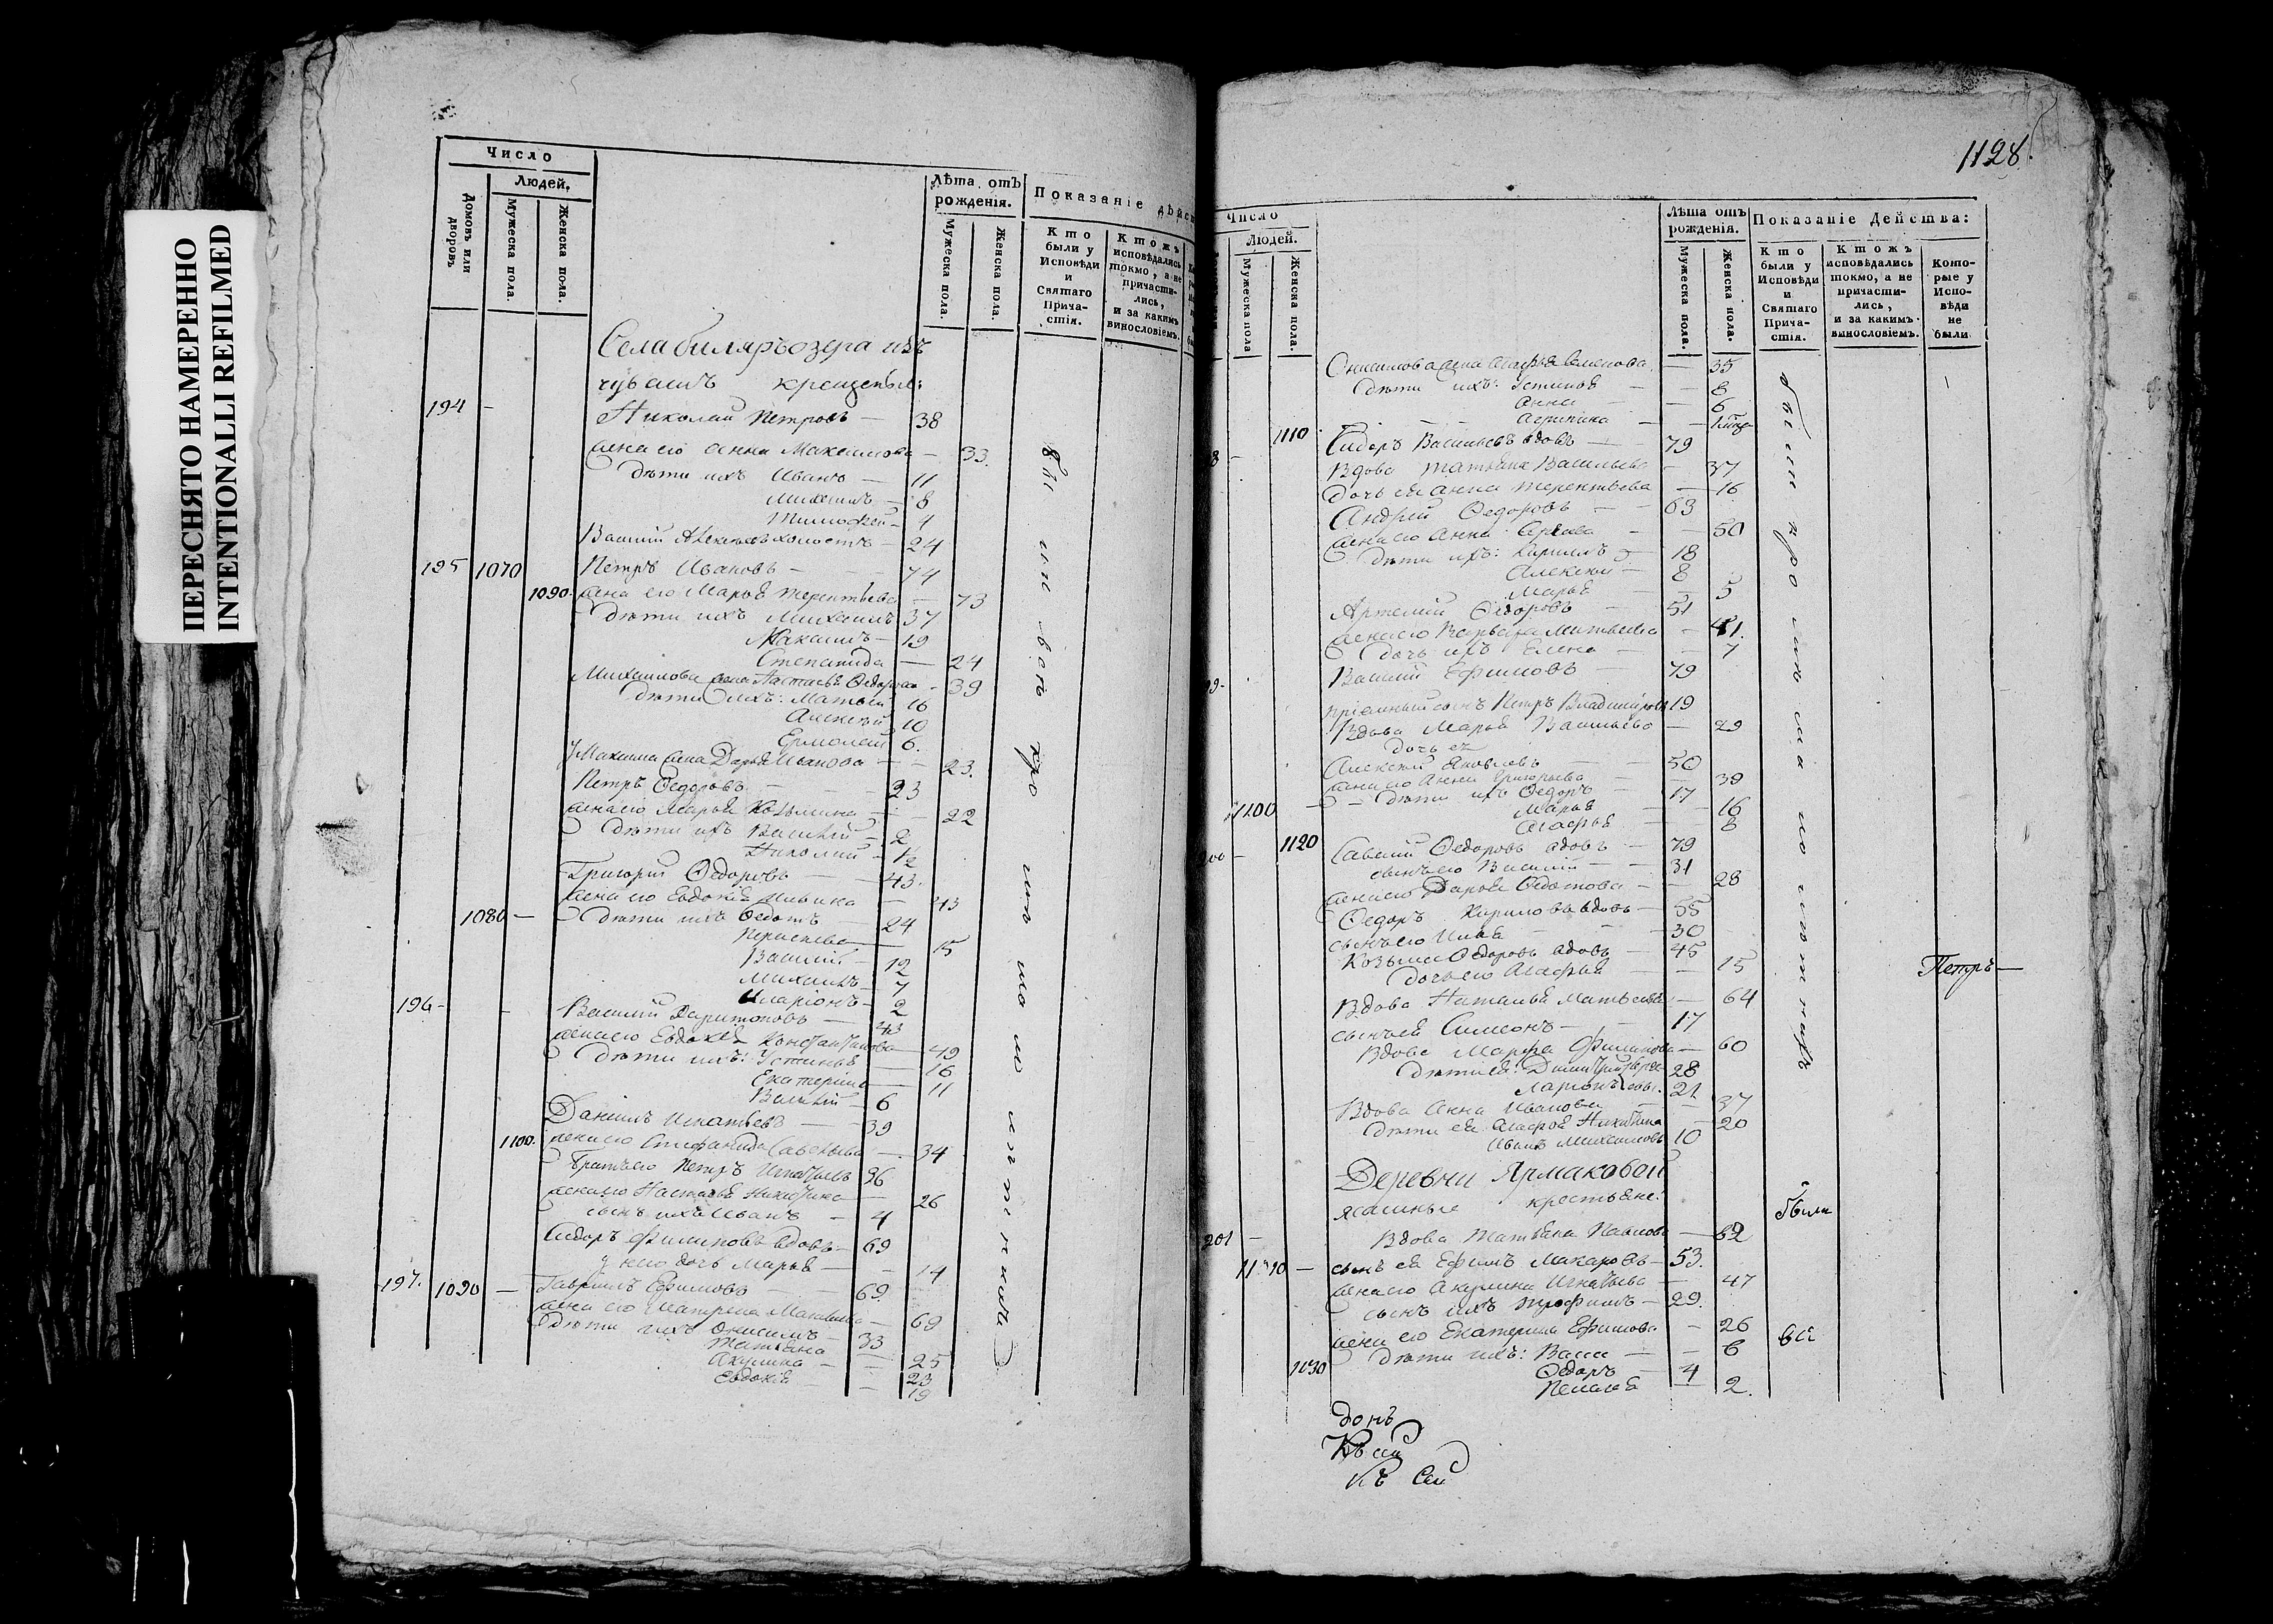 ПЕРЕСНЯТО НАМЕРЕННО
INTENTIONALLI REFILMED
Число
Людей.
Домовъ или дворовъ
Мужеска пола.
Женска пола.
Лѣта отъ рожденія.
Мужеска пола.
Женска пола.
Показаніе
Кто были у Исповѣди и Святаго Причастія.
Ктожъ исповѣдались токмо, а не причастились, и за какимъ винословіемъ.
Села билярьозера изъ
чувашъ крещеныя:
194 — Николай Петровъ — 38
жена его Анна Максимова — 33.
дѣти ихъ Иванъ — 11
Михаилъ — 8
Тимофей — 4
Василий Алексѣевъ холостъ — 24
195 1070 Петръ Ивановъ — 74
1090. жена его Марья Терентьева — 73
дѣти ихъ Михаилъ 37
Максимъ — 19
Степанида — 24
Михаилова жена Настасья Федорова — 39
дѣти ихъ: Матвей 16
Алексѣй 10
Ермолай 6.
у Максима жена Дарья Иванова — 23.
Петръ Федоровъ — 23
жена его Марья Козьмина — 22
дѣти ихъ Василий — 2
Николай — 1/2
Григорій Федоровъ — 43.
жена его Евдокія — 43
1080 — дѣти ихъ Федотъ 24
15
Василий — 12
Михаилъ — 7
Иларіонъ — 2
196 — Василий Харитоновъ — 43
жена его Евдокія Константинова — 49
дѣти ихъ: Устинья — 16
Екатерина — 11
Василий — 6
Даниилъ Игнатьевъ — 39
1100. жена его Стефанида Савельева — 34
братъ его Петръ Игнатьевъ 36
жена его Настасья Никитина — 26
сынъ ихъ Иванъ — 4
Сидоръ Филиповъ вдовъ — 69
у него дочь Марья — 14
197. 1090 — Гавриилъ Ефимовъ — 69.
жена его Матрена — 69
дѣти ихъ Онисимъ — 33
Татьяна — 25
Акулина — 23
Евдокія — 19
1128.
Число
Людей.
Мужеска пола
Женска пола.
Лѣта отъ рожденія.
Мужеска пола.
Женска пола.
Показаніе Действа:
Кто были у Исповѣди и Святаго Причастія.
Ктожъ исповѣдались токмо, а не причастились, и за какимъ винословіемъ.
Которые у Исповѣди не были
Онисимова жена Агафья — 35
дѣти ихъ: Устинья — 8
Анна — 6
1110 Агрипина —
Сидоръ Васильевъ вдовъ — 79
Вдова Татьяна Васильева — 37
дочь ея Анна Терентьева — 16
Андрей Федоровъ — 63
жена его Анна — 50
дѣти ихъ: Кирилъ — 18
Алексѣй — 8
Марья — 5
Артемій Федоровъ — 51
жена его Варвара Матвеева — 41.
дочь ихъ Елена — 7
Василий Ефимовъ — 79
пріемный сынъ Петръ Владимировъ 19
Вдова Марья Васильева — 29
дочь ея
Алексѣй Яковлевъ — 50
жена его Анна Григорьева — 39
1100 — дѣти ихъ Федоръ — 17
Марья — 16
Агафья — 8
1120 Савелий Федоровъ вдовъ — 79
сынъ его Василий — 31
жена его Дарья Федотова — 28
Федоръ Кириловъ вдовъ — 55
сынъ его Илья — 30
Козьма Федоровъ вдовъ — 45
дочь его Агафья — 15
Петръ —
Вдова Наталья Матвеева — 64
сынъ ея Симеонъ — 17
Вдова Марфа Филипова — 60
дѣти ея: 28
Ларіонъ 21
Вдова Анна Иванова — 37
дѣти ея Агафья Никитина — 20
Иванъ Михаиловъ 10
Деревни Ярмаковой
ясашные крестьяне:
были
201 — Вдова Татьяна Павлова — 82
1110 — сынъ ея Ефимъ Макаровъ — 53.
жена его Акулина Игнатьева — 47
сынъ ихъ Трофимъ — 29.
жена его Екатерина Ефимова — 26
1130 дѣти ихъ: Васса — 6
всѣ
Федоръ — 4
Пелагея — 2.
донъ
Къ сей
къ сей